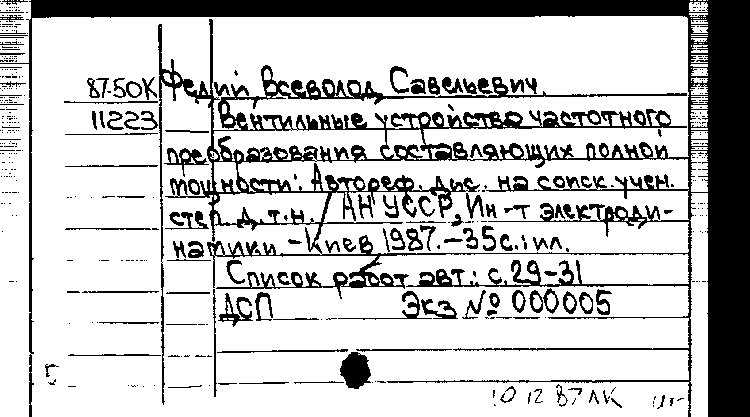 87-50К Федий, Всеволод Савельевич.
11223 Вентильные устройства частотного
преобразования составляющих полной
мощности: Автореф. дис. на соиск. учен.
степ. д.т.н. АН УССР, Ин-т электроди-
намики. - Киев 1987. - 35с.: ил.
Список работ авт.: с. 29-31
ДСП Экз № 000005
10 12 87 ЛК